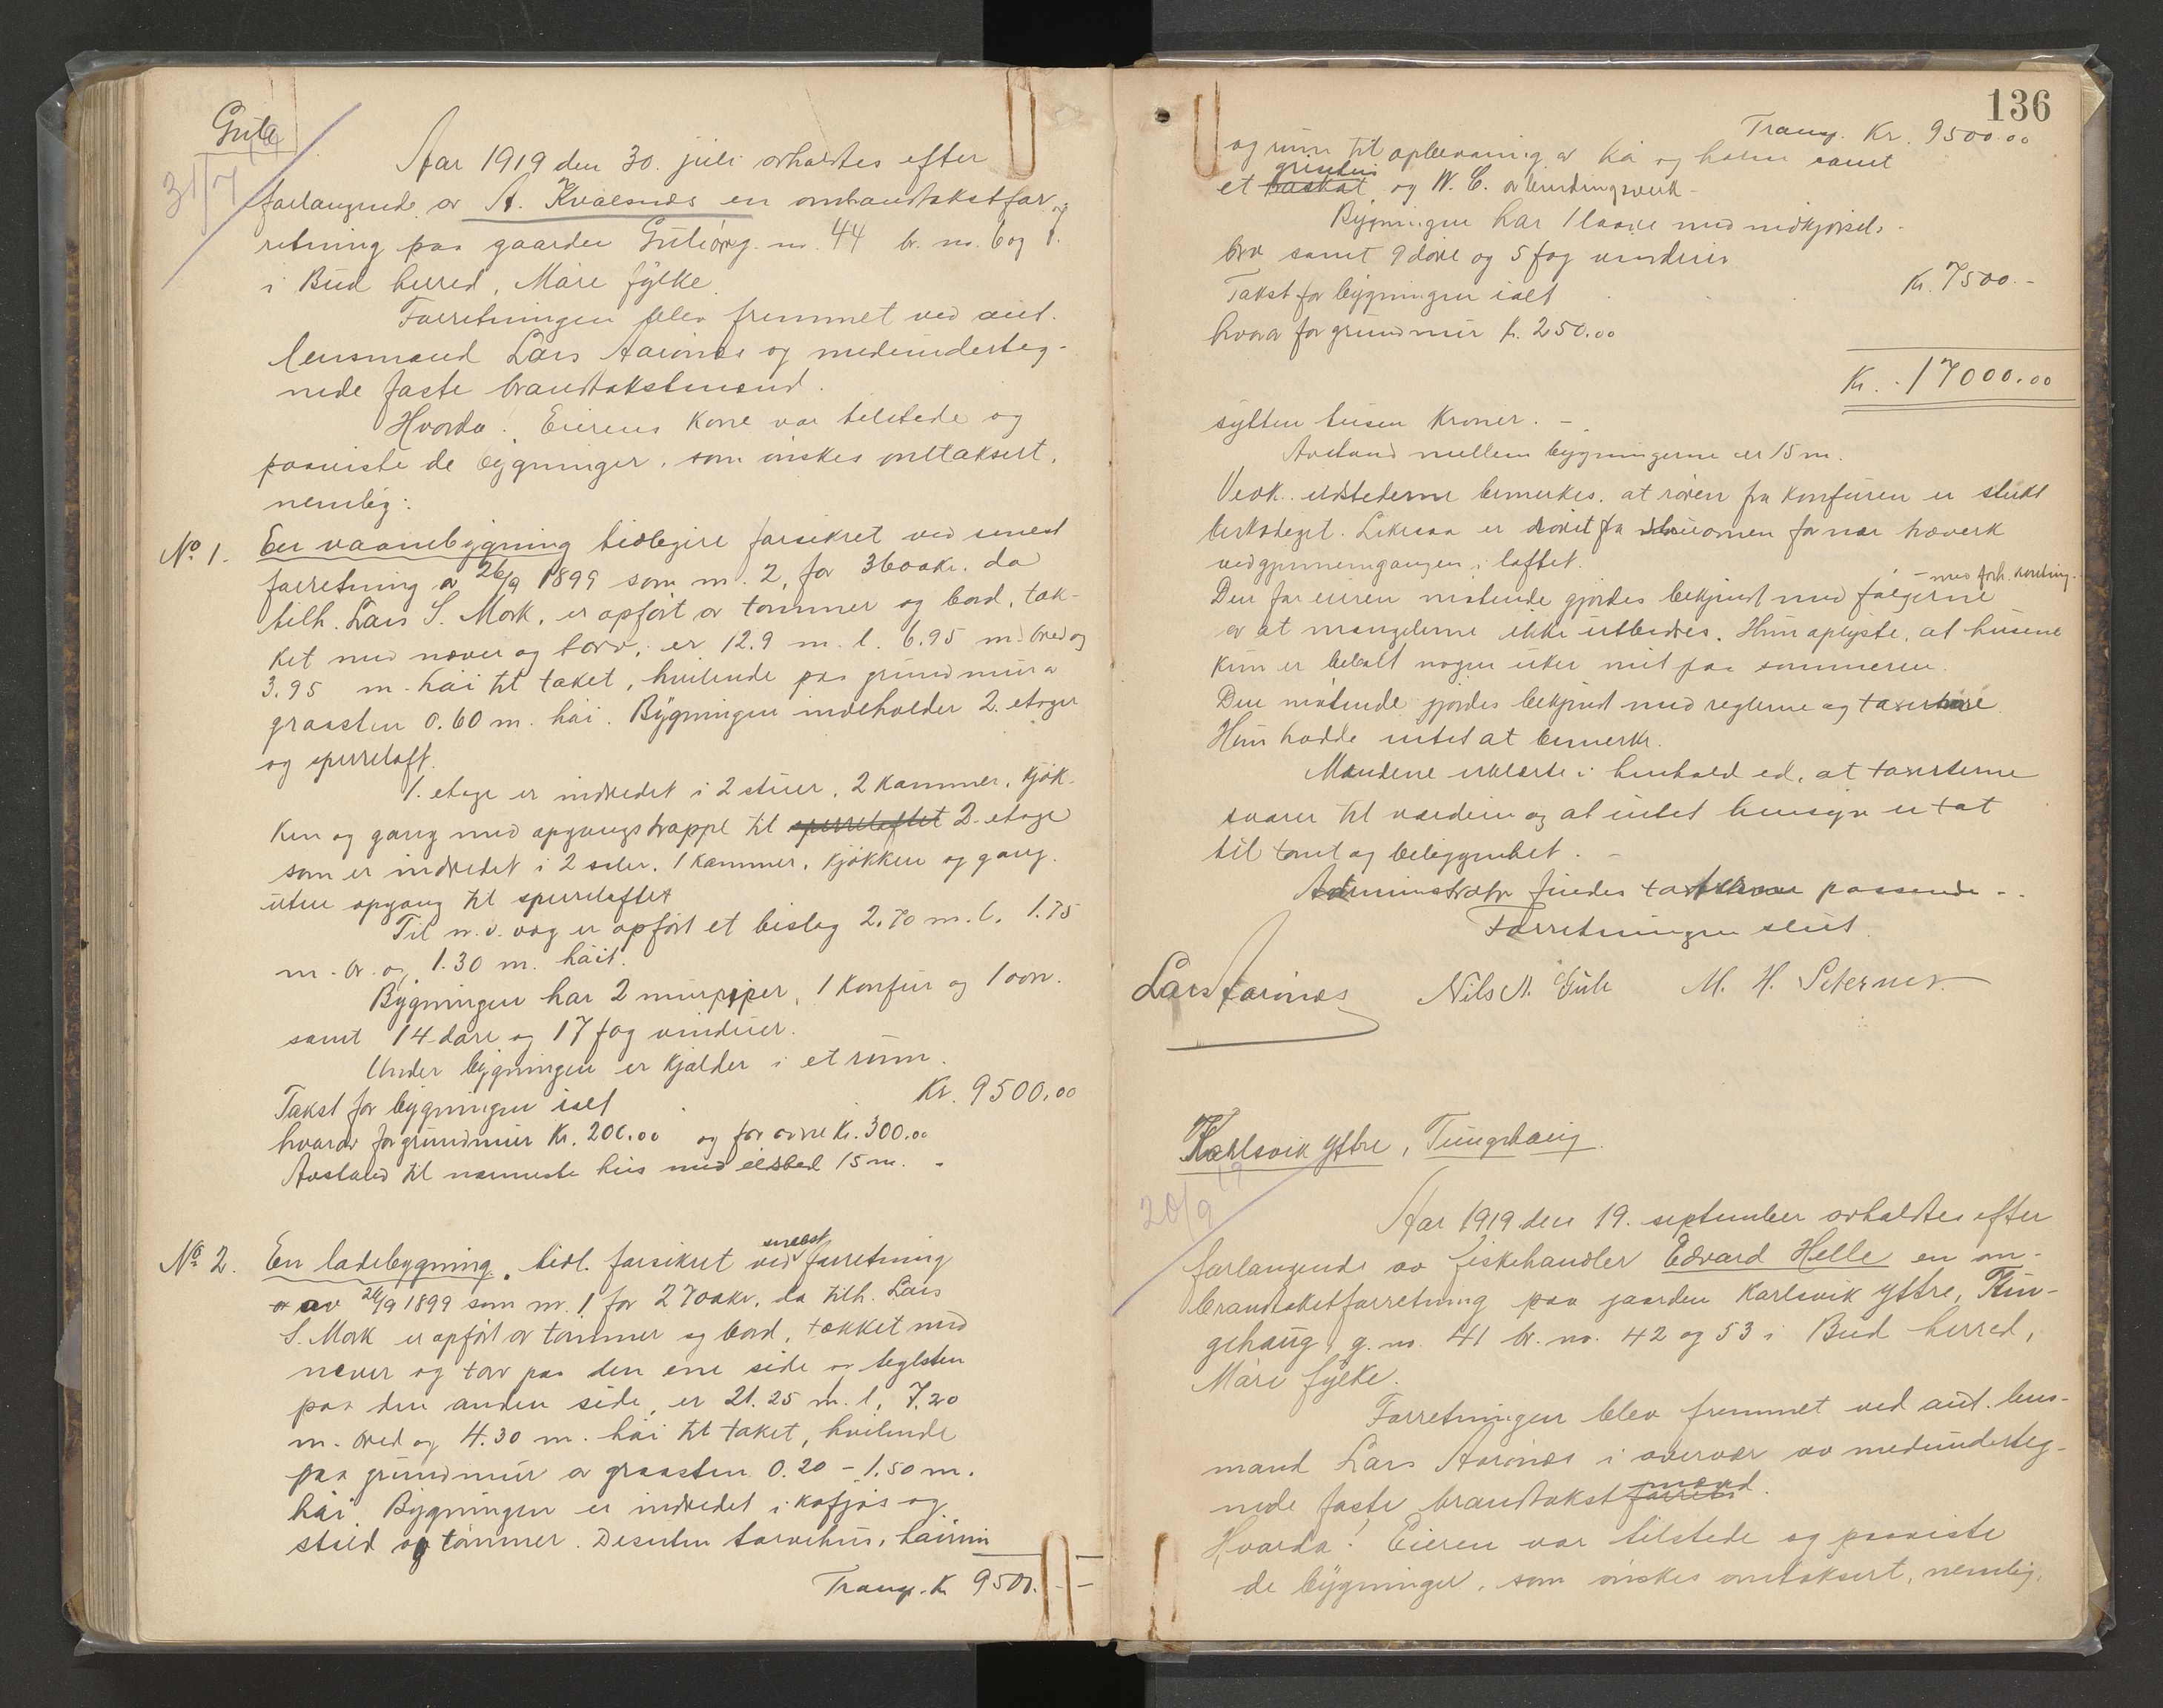 Gule
31/7 19
Aar 1919 den 30. juli avholdtes efter
forlangende av A. Kvalsnes en ombrandtakstfor-
retning paa gaarden Gule g. no. 44 br. no. 6 og 8.
i Bud herred, Møre fylke.
Forretningen blev fremmet ved aut.
lensmand Lars Aarønæs og medunderteg-
nede faste brandtakstmænd.
Hvorda! Eierens kone var tilstede og
paaviste de bygninger, som ønskes omtaksert,
nemlig:
No 1. En vaanebygning tidligere forsikret ved senest
forretning av 26/9 1899 som nr. 2, for 3600 kr. da
tilh. Lars S. Mork, er opført av tømmer og bord, tæk-
ket med næver og torv, er 12.9 m. l. 6.95 m. bred og
3.95 m. høi til taket, hvilende paa grundmur av
graasten 0.60 m. høi. Bygningen indeholder 2. etager
og sperreloft.
1. etage er indredet i 2 stuer, 2 kammer, kjøk-
ken og gang med opgangstrappe til sperreloftet 2. etage
som er indredet i 2 saler, 1 kammer, kjøkken og gang.
uten opgang til sperreloftet
Til n. v. væg er opført et bislag 2.70 m. l. 1.75
m. br. og 1.30 m. høit.
Bygningen har 2 murpiper, 1 komfur og 1 ovn.
samt 14 døre og 17 fag vinduer.
Under bygningen er kjælder i et rum.
Takst for bygningen ialt Kr. 9500.00
hvorav for grundmur Kr. 200.00 og for ovne Kr. 300.00
Avstand til nærmeste hus med ildsted 15 m. -
No 2. En ladebygning, tidl. forsikret ved senest forretning
av 26/9 1899 som nr. 1 for 2700 kr. da tilh. Lars
S. Mork er opført av tømmer og bord, tækket med
næver og torv paa den ene side og teglsten
paa den anden side, er 21.25 m. l. 7.20
m. bred og 4.30 m. høi til taket, hvilende
paa grundmur av graasten 0.20 - 1.50 m.
høi. Bygningen er indredet i kufjøs og
stald av tømmer. Desuten torvehus, høirum
Transp. Kr 9500. --
136
Transp. Kr. 9500.00
og rum til opbevaring av og halm samt
et grisehus og W. C. av bindingsverk -
Bygningen har 1 laave med nedkjørsels-
bro samt 9 døre og 5 fag vinduer
Takst for bygningen ialt Kr. 7500.-
hvorav for grundmur k. 250.00
Kr. 17000.00
sytten tusen Kroner. -
Avstand mellem bygningerne er 15 m.
Vedk. ildstederne bemerkes, at røren fra komfuren er slukt
Likesaa er røret fra ovnen for nær træverk
ved gjennemgangen i loftet.
Den for eieren møtende gjordes bekjendt med følgerne
av at manglerne ikke utbedres. Hun oplyste, at husene
kun er bebodd nogen uker midt paa sommeren.
Den møtende gjordes bekjendt med reglerne og taksterne
Hun hadde intet at bemerke.
Mændene erklærte i henhold ed, at taksterne
svarer til værdien og at intet hensyn er tat
til tomt og beliggenhet. -
Administrator findes taksterne passende -.
Forretningen slut.
Lars Aarønæs Nils N. Gule M. H. Seternes
Karlsvik Yttre, Tungehaug
20/9 19
Aar 1919 den 19. september avholdtes efter
forlangende av fiskehandler Edvard Helle en om-
brandtakstforretning paa gaarden Karlsvik Yttre, Tun-
gehaug, g. no. 41 br. no. 42 og 53 i Bud herred,
Møre fylke.
Forretningen blev fremmet ved aut. lens-
mand Lars Aarønæs i overvær av medunderteg-
nede faste brandtakstmænd.
Hvorda! Eieren var tilstede og paaviste
de bygninger, som ønskes omtaksert, nemlig: